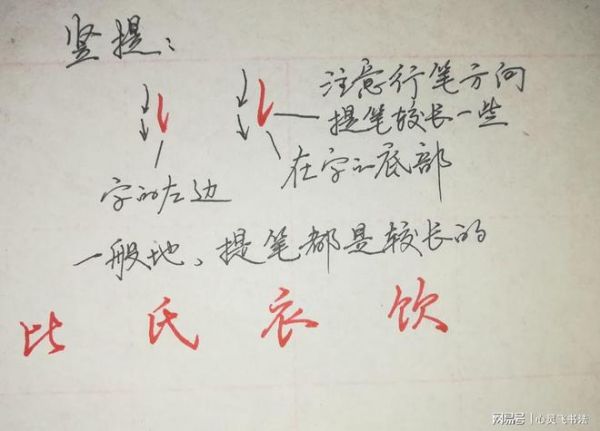 竖提：
注意行笔方向
提笔较长一些
字的左边
在字的底部
一般地、提笔都是较长的
比 氏 衣 饮
网易号 | 心灵飞书法